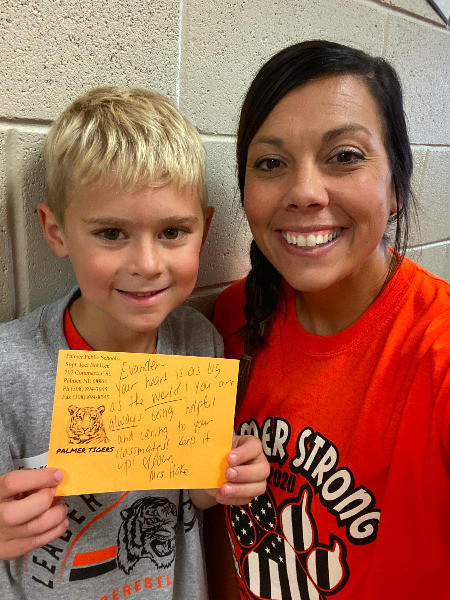 Palmer Public Schools
Supt. Joel Bohlken
202 Commercial St.
Palmer, NE 68864
Ph (308) 894-3065
Fax (308) 894-8245
PALMER TIGERS
Evander-
Your heart is as big
as the world! You are
always being helpful
and caring to your
classmates! Keep it
up!
Mrs.
LEADER
REBEL
PALMER STRONG
2020